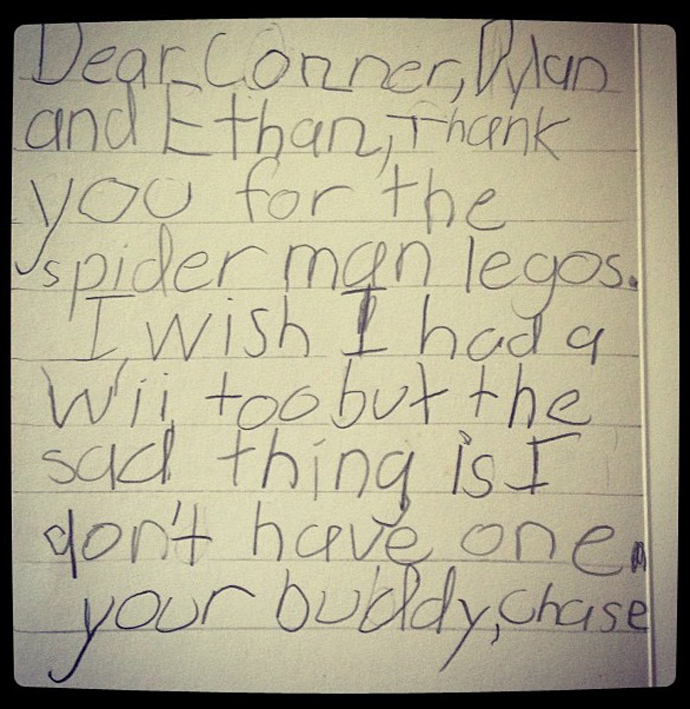 Dear Conner, Dylan
and Ethan, Thank
you for the
spider man legos.
I wish I had a
Wii too but the
sad thing is I
don't have one.
your buddy, Chase